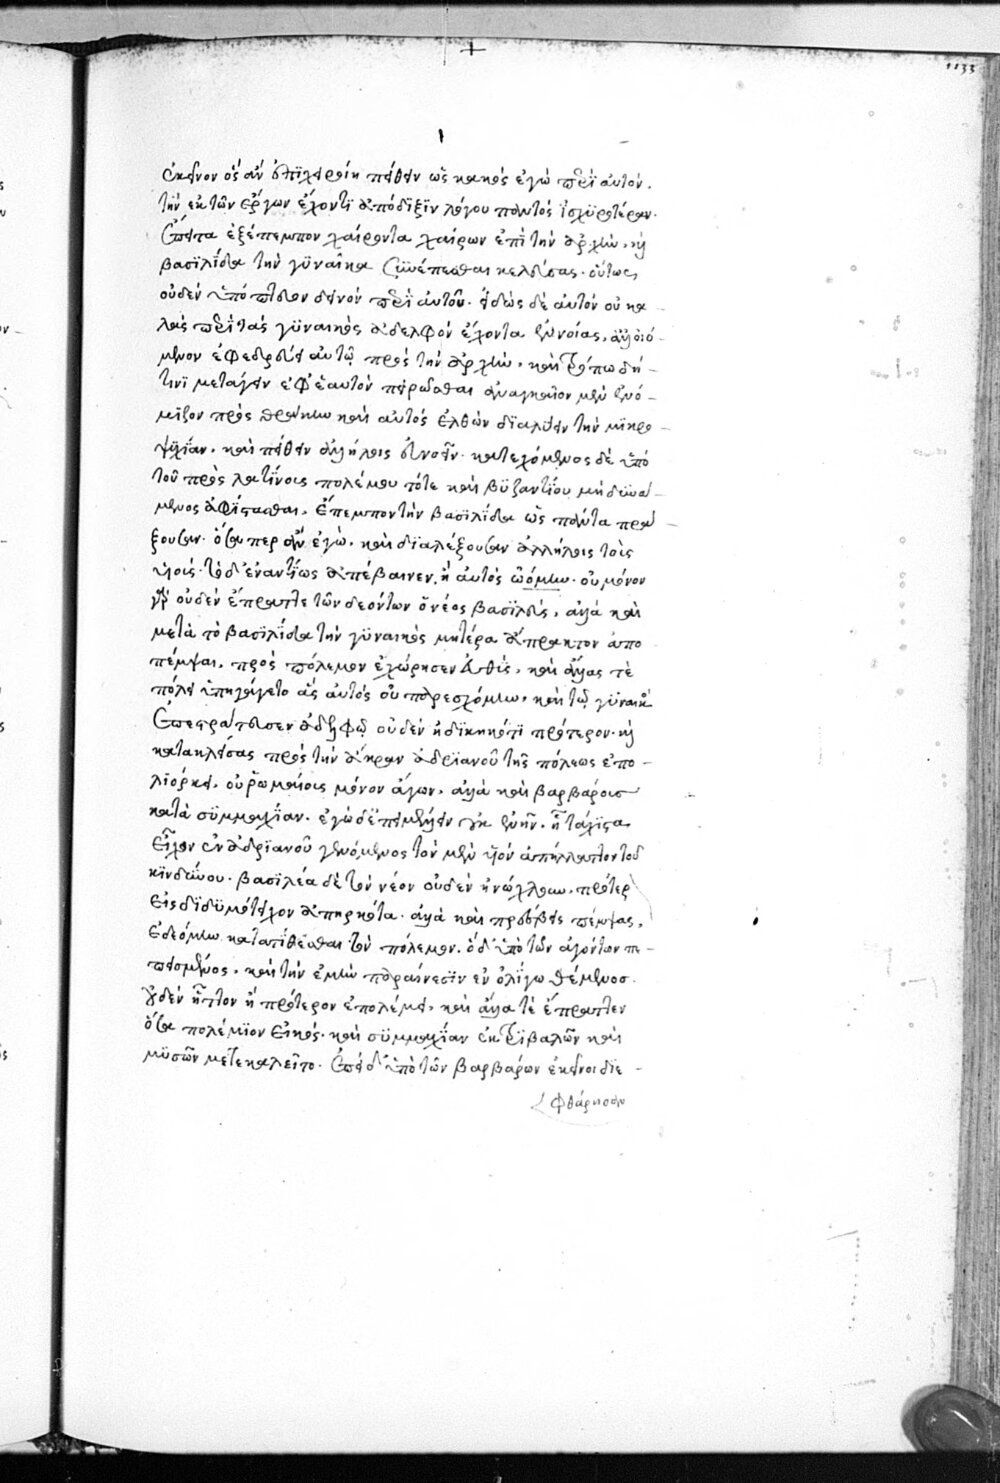 1133
ἐκεῖνον ὃς ἂν ἐπιχειροίη πείθειν ὡς κακὸς ἐγὼ περὶ αὐτόν.
τὴν ἐκ τῶν ἔργων ἔχοντι ἀπόδειξιν λόγου παντὸς ἰσχυροτέραν.
ἔπειτα ἐξέπεμπον χαίροντα χαίρων ἐπὶ τὴν ἀρχὴν, καὶ
βασιλίδα τὴν γυναῖκα συνέπεσθαι κελεύσας. οὕτως
οὐδὲν ὑπόπτευον δεινὸν περὶ αὐτοῦ. εἰδὼς δὲ αὐτὸν οὐ κα
λῶς περὶ τὰς γυναικὸς ἀδελφὸν ἔχοντα εὐνοίας, ἀλλ' οἰό-
μενον ἐφεδρεύειν αὐτῷ πρὸς τὴν ἀρχὴν, καὶ τρόπῳ δή-
τινι μετάγειν ἐφ' ἑαυτὸν πειρᾶσθαι ἀναγκαῖον μὲν ἐνό-
μιζον πρὸς θρᾴκην καὶ αὐτὸς ἐλθὼν διαλύειν τὴν μικρο-
ψυχίαν, καὶ πείθειν ἀλλήλοις εὐνοεῖν. κατεχόμενος δὲ ὑπὸ
τοῦ πρὸς λατίνους πολέμου τότε καὶ βυζαντίου μὴ δυνά-
μενος ἀφίστασθαι, ἔπεμπον τὴν βασιλίδα ὡς πάντα πρά-
ξουσαν. ὅσα περ ἂν ἐγὼ, καὶ διαλέξουσαν ἀλλήλοις τοὺς
υἱούς. τὸ δ' ἐναντίως ἀπέβαινεν, ἢ αὐτὸς ᾠόμην. οὐ μόνον
γὰρ οὐδὲν ἔπραττε τῶν δεόντων ὁ νέος βασιλεὺς, ἀλλὰ καὶ
μετὰ τὸ βασιλίδα τὴν γυναικὸς μητέρα ἄπρακτον ἀπο
πέμψαι, πρὸς πόλεμον ἐχώρησεν εὐθὺς, καὶ ἄλλας τὲ
πόλεις ὑπηγάγετο ἃς αὐτὸς οὐ παρεσχόμην, καὶ τῷ γυναικὸς
ἐπεστράτευσεν ἀδελφῷ οὐδὲν ἠδικηκότι πρότερον. καὶ
κατακλείσας πρὸς τὴν ἄκραν ἀδριανοῦ τῆς πόλεως ἐπο-
λιόρκει, οὐ ῥωμαίους μόνον ἄγων, ἀλλὰ καὶ βαρβάρους
κατὰ συμμαχίαν. ἐγὼ δὲ πέμψειν οὐκ ἐνῆν. ᾗ τάχιστα
εἶχον ἐν ἀδριανοῦ γενόμενος τὸν μὲν υἱὸν ἀπήλλαττον τοῦ
κινδύνου. βασιλέα δὲ τὸν νέον οὐδὲν ἠνώχλουν, πρότερ
εἰς διδυμότειχον ἀπηρκότα. ἀλλὰ καὶ πρέσβεις πέμψας,
ἐδεόμην κατατίθεσθαι τὸν πόλεμον. ὁ δ' ὑπὸ τῶν ἀγόντων πε-
πεισμένος, καὶ τὴν ἐμὴν παραίνεσιν ἐν ὀλίγῳ θέμενος
οὐδὲν ἧττον ἢ πρότερον ἐπολέμει, καὶ ἄλλα τὲ ἔπραττεν
ὅσα πολέμιον εἰκός. καὶ συμμαχίαν ἐκ τριβαλῶν καὶ
μυσῶν μετεκαλεῖτο. ἐπεὶ δ' ὑπὸ τῶν βαρβάρων ἐκεῖνοι διε-
φθάρησαν